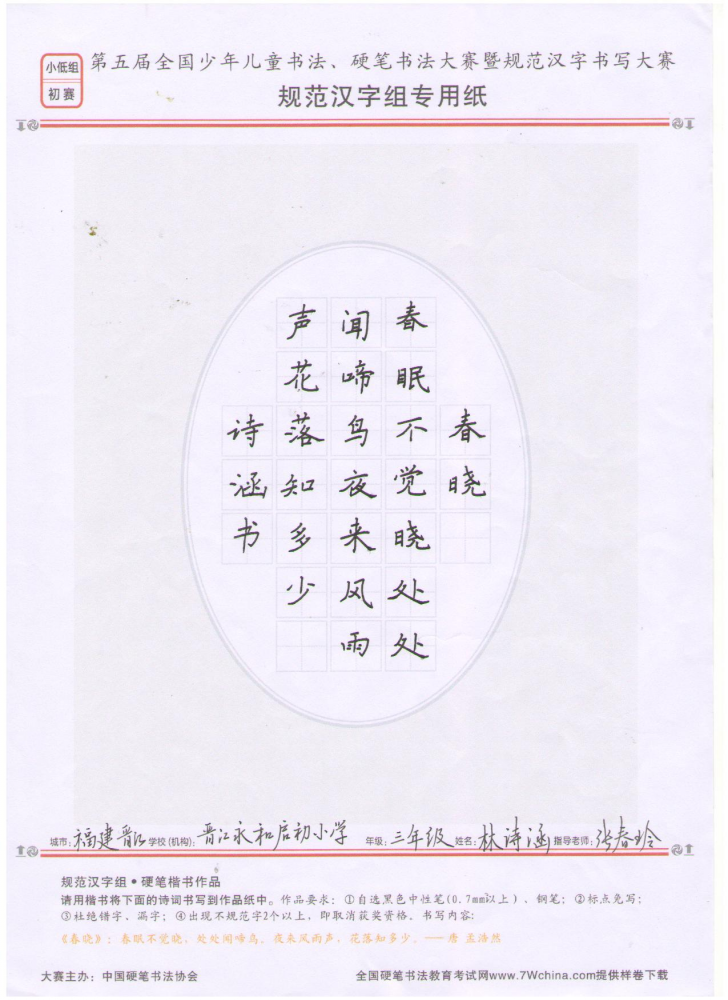 小低组
初赛
第五届全国少年儿童书法、硬笔书法大赛暨规范汉字书写大赛
规范汉字组专用纸
春晓
春眠不觉晓处处
闻啼鸟夜来风雨
声花落知多少
诗涵书
城市：福建晋江 学校(机构)：晋江永和启初小学 年级：三年级 姓名：林诗涵 指导老师：张春玲
规范汉字组•硬笔楷书作品
请用楷书将下面的诗词书写到作品纸中。作品要求：①自选黑色中性笔(0.7mm以上)、钢笔；②标点免写；
③杜绝错字、漏字；④出现不规范字2个以上，即取消获奖资格。书写内容：
《春晓》：春眠不觉晓，处处闻啼鸟。夜来风雨声，花落知多少。——唐 孟浩然
大赛主办：中国硬笔书法协会
全国硬笔书法教育考试网www.7Wchina.com提供样卷下载